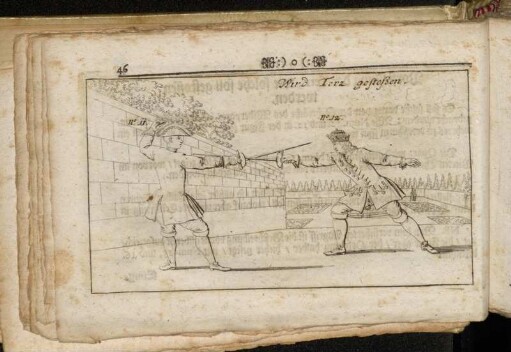 46
Wird Terz gestoßen.
No. 11.
No. 12.